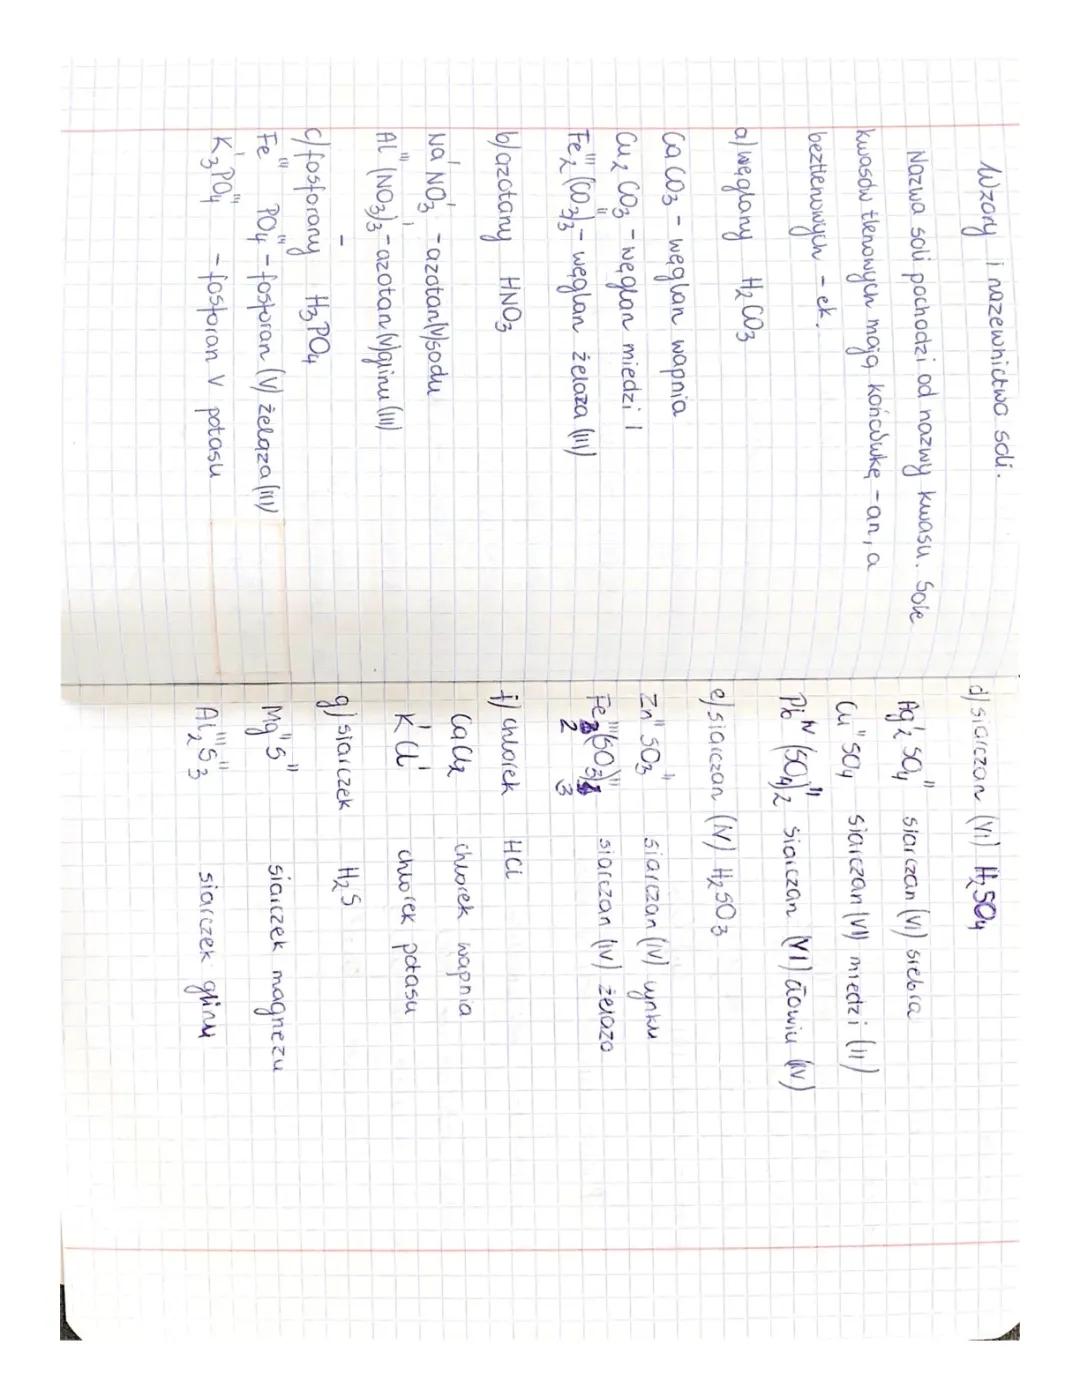 Wzory i nazewnictwo soli.
Nazwa soli pochodzi od nazwy kwasu. Sole
kwasów tlenowych mają końcówkę -an, a
beztlenowych - ek.
a) węglany H₂CO₃
CaCO₃ - węglan wapnia
Cu₂CO₃ - węglan miedzi I
Fe₂ᴵᴵᴵ(CO₃)₃ᴵᴵ - węglan żelaza (III)
b) azotany HNO₃
Naᴵ NO₃ᴵ - azotan(V) sodu
Alᴵᴵᴵ (NO₃)₃ᴵ - azotan(V) glinu (III)
c) fosforany H₃PO₄
Feᴵᴵᴵ PO₄ᴵᴵᴵ - fosforan (V) żelaza (III)
K₃ᴵPO₄ᴵᴵᴵ - fosforan V potasu
d) siarczan (VI) H₂SO₄
Ag₂ᴵ SO₄ᴵᴵ siarczan (VI) srebra
Cuᴵᴵ SO₄ siarczan (VI) miedzi (II)
Pbᴵⱽ (SO₄)₂ᴵᴵ siarczan (VI) ołowiu (IV)
e) siarczan (IV) H₂SO₃
Znᴵᴵ SO₃ᴵᴵ siarczan (IV) cynku
Fe₂ᴵᴵᴵ(SO₃)₃ᴵᴵ siarczan (IV) żelaza
f) chlorek HCl
CaCl₂ chlorek wapnia
Kᴵ Clᴵ chlorek potasu
g) siarczek H₂S
Mgᴵᴵ Sᴵᴵ siarczek magnezu
Al₂ᴵᴵᴵ S₃ᴵᴵ siarczek glinu